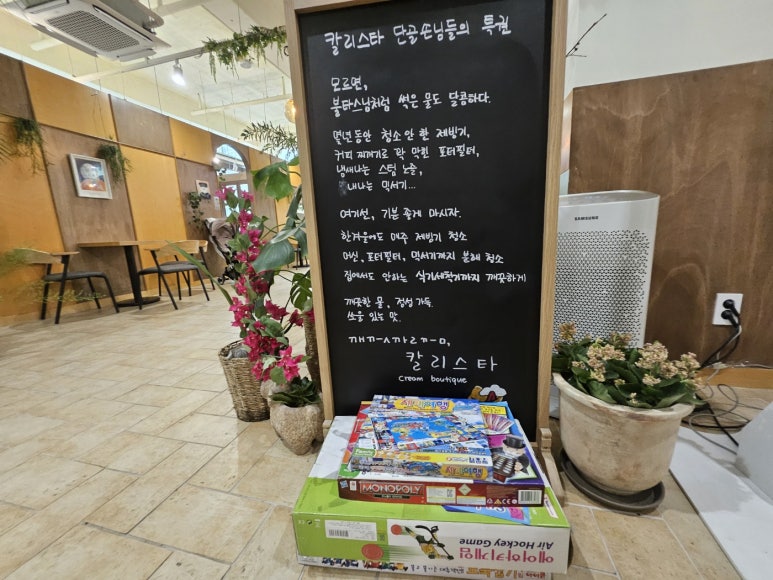 칼리스타 단골손님들의 특권
모르면,
불타스님처럼 썩은 물도 달콤하다.
몇년동안 청소 안 한 제빙기,
커피 찌꺼기로 꽉 막힌 포터필터,
냄새나는 스팀 노즐,
내나는 믹서기...
여기선, 기분 좋게 마시자.
한겨울에도 매주 제빙기 청소
머신, 포터필터, 믹서기까지 분해 청소
집에서도 안하는 식기세척기까지 깨끗하게
깨끗한 물, 정성 가득.
쏘울 있는 맛.
ㄲㅐㄲㅡㅅㄲㅏㄹㄲㅡㅁ,
칼리스타
cream boutique
SAMSUNG
Family
MONOPOLY
에어하키게임
Air Hockey Game